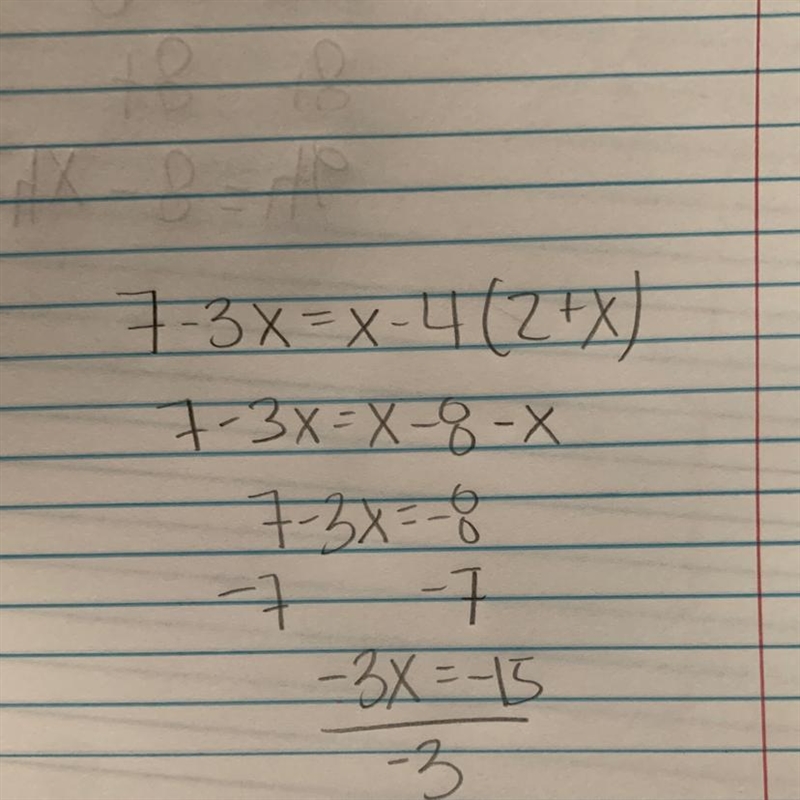 7-3x=x-4(2+x)
7-3x=x-8-x
7-3x=-8
-7 -7
-3x=-15
-3